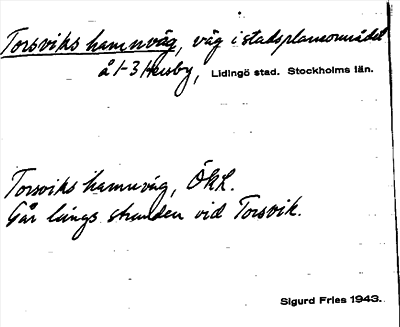 Torsviks hamnväg, väg i stadsplaneområdet
å 1-3 Hersby, Lidingö stad. Stockholms län.
Torsviks hamnväg, ÖKL.
Går längs stranden vid Torsvik.
Sigurd Fries 1943.